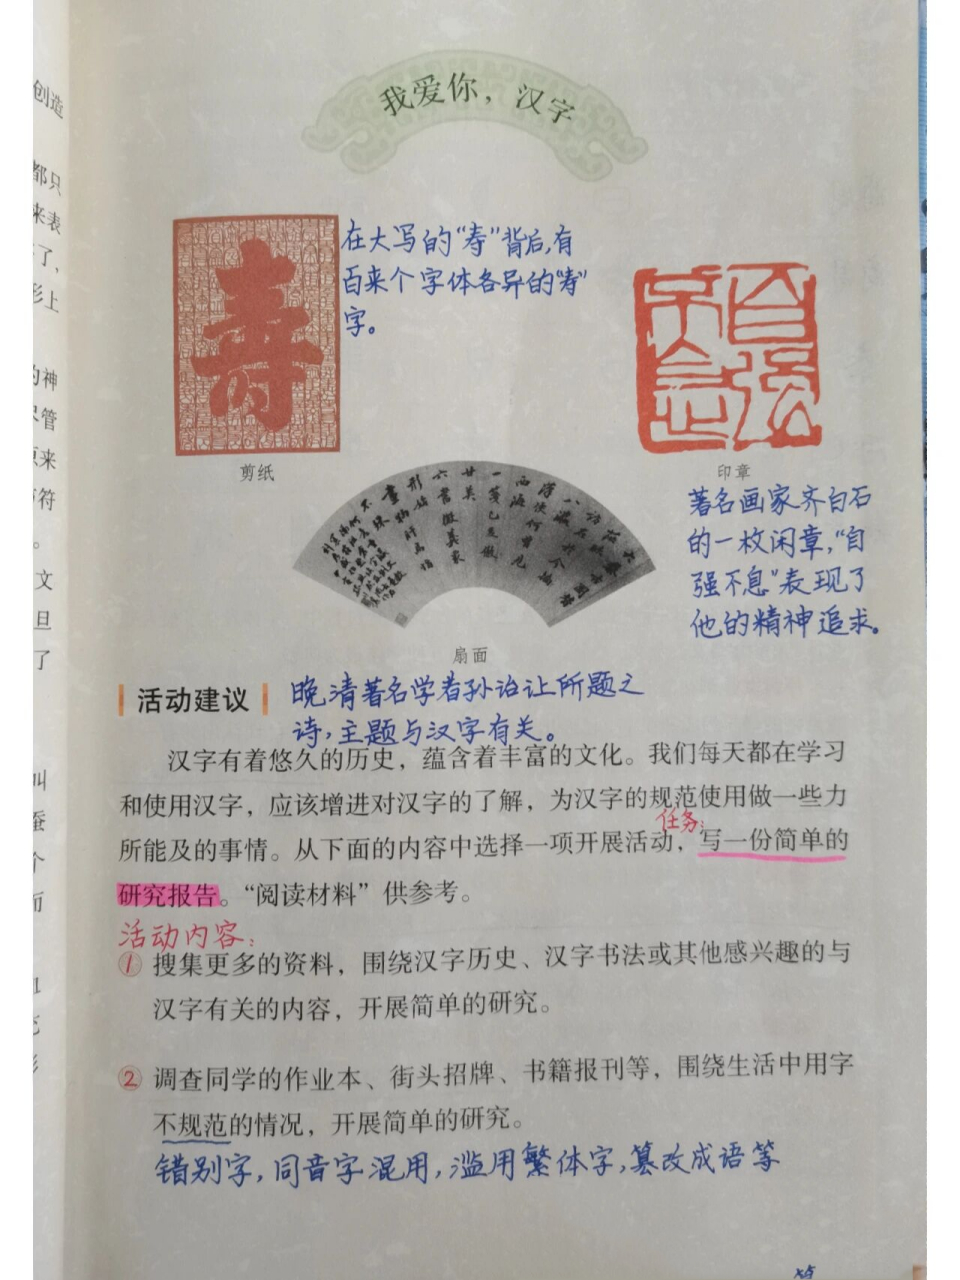 创造
都只
来表
了，
形上
的神
尽管
原来
符
。
文
旦
了
叫
蚕
个
而
我爱你，汉字
寿
在大写的“寿”背后，有
百来个字体各异的“寿”
字。
剪纸
自强
不息
印章
著名画家齐白石
的一枚闲章，“自
强不息”表现了
他的精神追求。
扇面
活动建议
晚清著名学者孙诒让所题之
诗，主题与汉字有关。
汉字有着悠久的历史，蕴含着丰富的文化。我们每天都在学习
和使用汉字，应该增进对汉字的了解，为汉字的规范使用做一些力
任务：
所能及的事情。从下面的内容中选择一项开展活动，写一份简单的
研究报告。“阅读材料”供参考。
活动内容：
① 搜集更多的资料，围绕汉字历史、汉字书法或其他感兴趣的与
汉字有关的内容，开展简单的研究。
② 调查同学的作业本、街头招牌、书籍报刊等，围绕生活中用字
不规范的情况，开展简单的研究。
错别字，同音字混用，滥用繁体字，篡改成语等